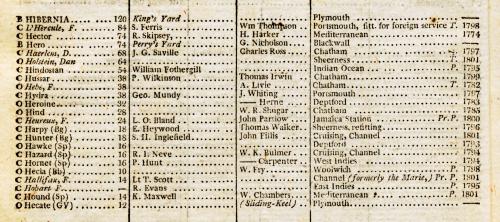 B HIBERNIA 120 King's Yard Plymouth —
C L'Hercule, F. 84 S. Ferris Wm Thompson Portsmouth, fitt. for foreign service T. 1798
C Hector 74 R. Skipsey, H. Harker Mediterranean 1774
B Hero 74 Perry's Yard G. Nicholson Blackwall —
C Haerlem, D. 68 J. G. Saville Charles Ross Chatham T. 1797
O Holstein, Dan 64 Sheerness T. 1801
C Hindostan 54 William Fothergill Indian Ocean P. 1795
C Hussar 38 P. Wilkinson Thomas Irwin Chatham 1799
O Hebe, F. 38 A. Livie Chatham T. 1782
C Hydra 38 Geo. Mundy J. Whiting Portsmouth 1797
O Heroine 32 — Herne Deptford 1783
O Hind 28 W. R. Shugar Chatham 1785
C Heureux, F. 24 L. O. Bland John Partlow Jamaica Station Pr. P. 1800
C Harpy (Bg) 18 E. Heywood Thomas Walker Sheerness, refitting 1796
C Hunter (Bg) 18 S. H. Inglefield John Fills Cruising, Channel 1801
O Hawke (Sp) 16 Deptford 1793
C Hazard (Sp) 16 R. J. Neve W. K. Bulmer Cruising, Channel 1794
C Hornet (Sp) 16 P. Hunt — Carpenter West Indies 1794
O Hecla (Bb) 10 W. Fry Woolwich P. 1798
C Halifax, F. 14 Lt T. Scott Channel (formerly the Marie,) Pr. P. 1801
C Hobart F. — R. Evans East Indies P. 1795
C Hound (Sp) 14 K. Maxwell W. Chambers Mediterranean P. 1801
O Hecate (GV) 12 (Sliding-Keel) Plymouth —